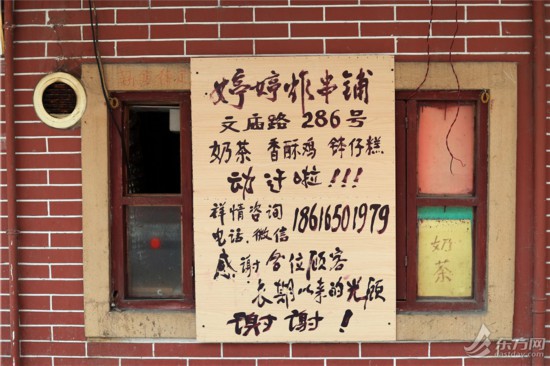 婷婷炸串铺
文庙路 286号
奶茶 香酥鸡 钵仔糕
动迁啦!!!
详情咨询
电话、微信 18616501979
感谢各位顾客
长期以来的光顾
谢谢!
奶茶
东方网
eastday.com